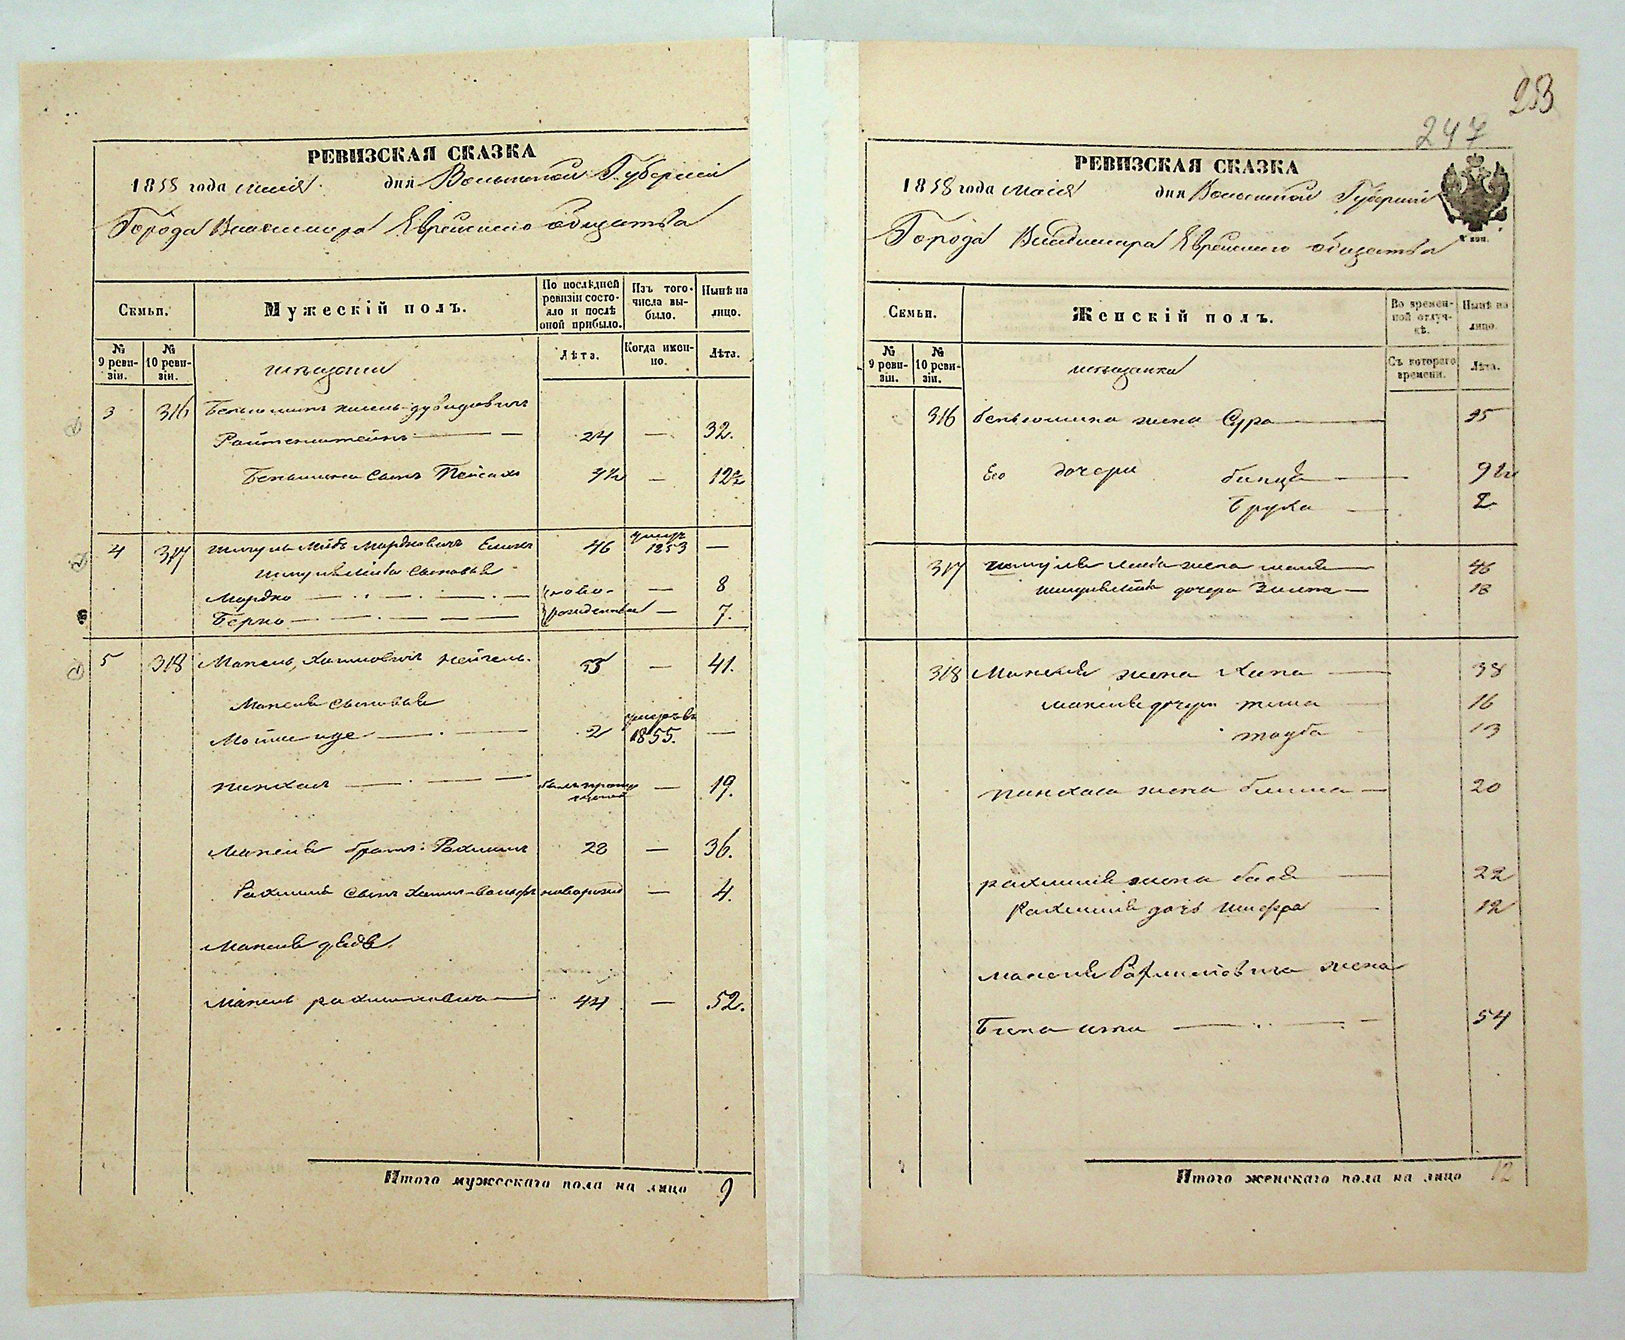 РЕВИЗСКАЯ СКАЗКА
1858 года мая дня Волынской Губернии
Города Владимира Еврейского общества
Семьи.
Мужескій полъ.
По послѣдней ревизіи состояло и послѣ оной прибыло.
Изъ того числа выбыло.
Нынѣ на лицо.
№ 9 ревизіи.
№ 10 ревизіи.
мѣщане
Лѣта.
Когда именно.
Лѣта.
3 316 Беньюминъ Дувидовичъ
24 — 32.
Беньюмина сынъ Пейсахъ 4½ — 12½
4 317 Шмуль Лейбъ Мордковичъ 46 умеръ 1853 —
Шмуля Лейба сыновья
Мордко 8
Берко — 7.
5 318 Манель Хаимовичъ 33 — 41.
Манеля сыновья
2 умеръ въ 1855. —
Пинхасъ былъ пропущенъ — 19.
Манеля братъ Рахмиль 28 — 36.
Рахмиля сынъ Хаимъ-Вольфъ новорожд — 4.
Манеля дядя
Манель Рахмиловичъ 44 — 52.
Итого мужескаго пола на лицо 9
253
247
РЕВИЗСКАЯ СКАЗКА
1858 года мая дня Волынской Губернии
Города Владимира Еврейского общества
Семьи.
Женскій полъ.
Во временной отлучкѣ.
Нынѣ на лицо.
№ 9 ревизіи.
№ 10 ревизіи.
мѣщанки
Съ котораго времени.
Лѣта.
316 Беньюмина жена Сура 35
Его дочери 9½
Бруха 2
317 Шмуля Лейба жена 46
Шмуля Лейба дочери 18
318 Манеля жена Хана 38
Манеля дочери 16
Тауба 13
Пинхаса жена Блима 20
Рахмиля жена Бася 22
Рахмиля дочь Шифра 12
Манеля Рахмиловича жена
54
Итого женскаго пола на лицо 12